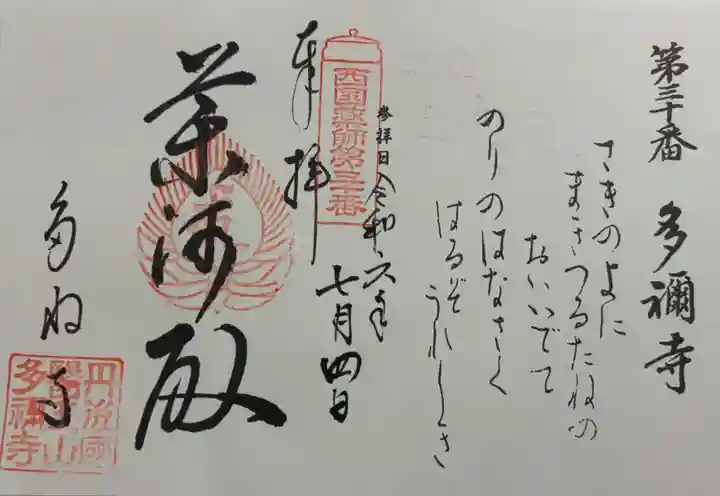 第三十番 多禰寺
さきのよに
まきつるたねの
おいいでて
のりのはなさく
はるぞうれしき
参拝日 令和六年
七月四日
西国薬師第三十番
奉拝
薬師殿
多祢寺
丹後國
醫王山
多禰寺